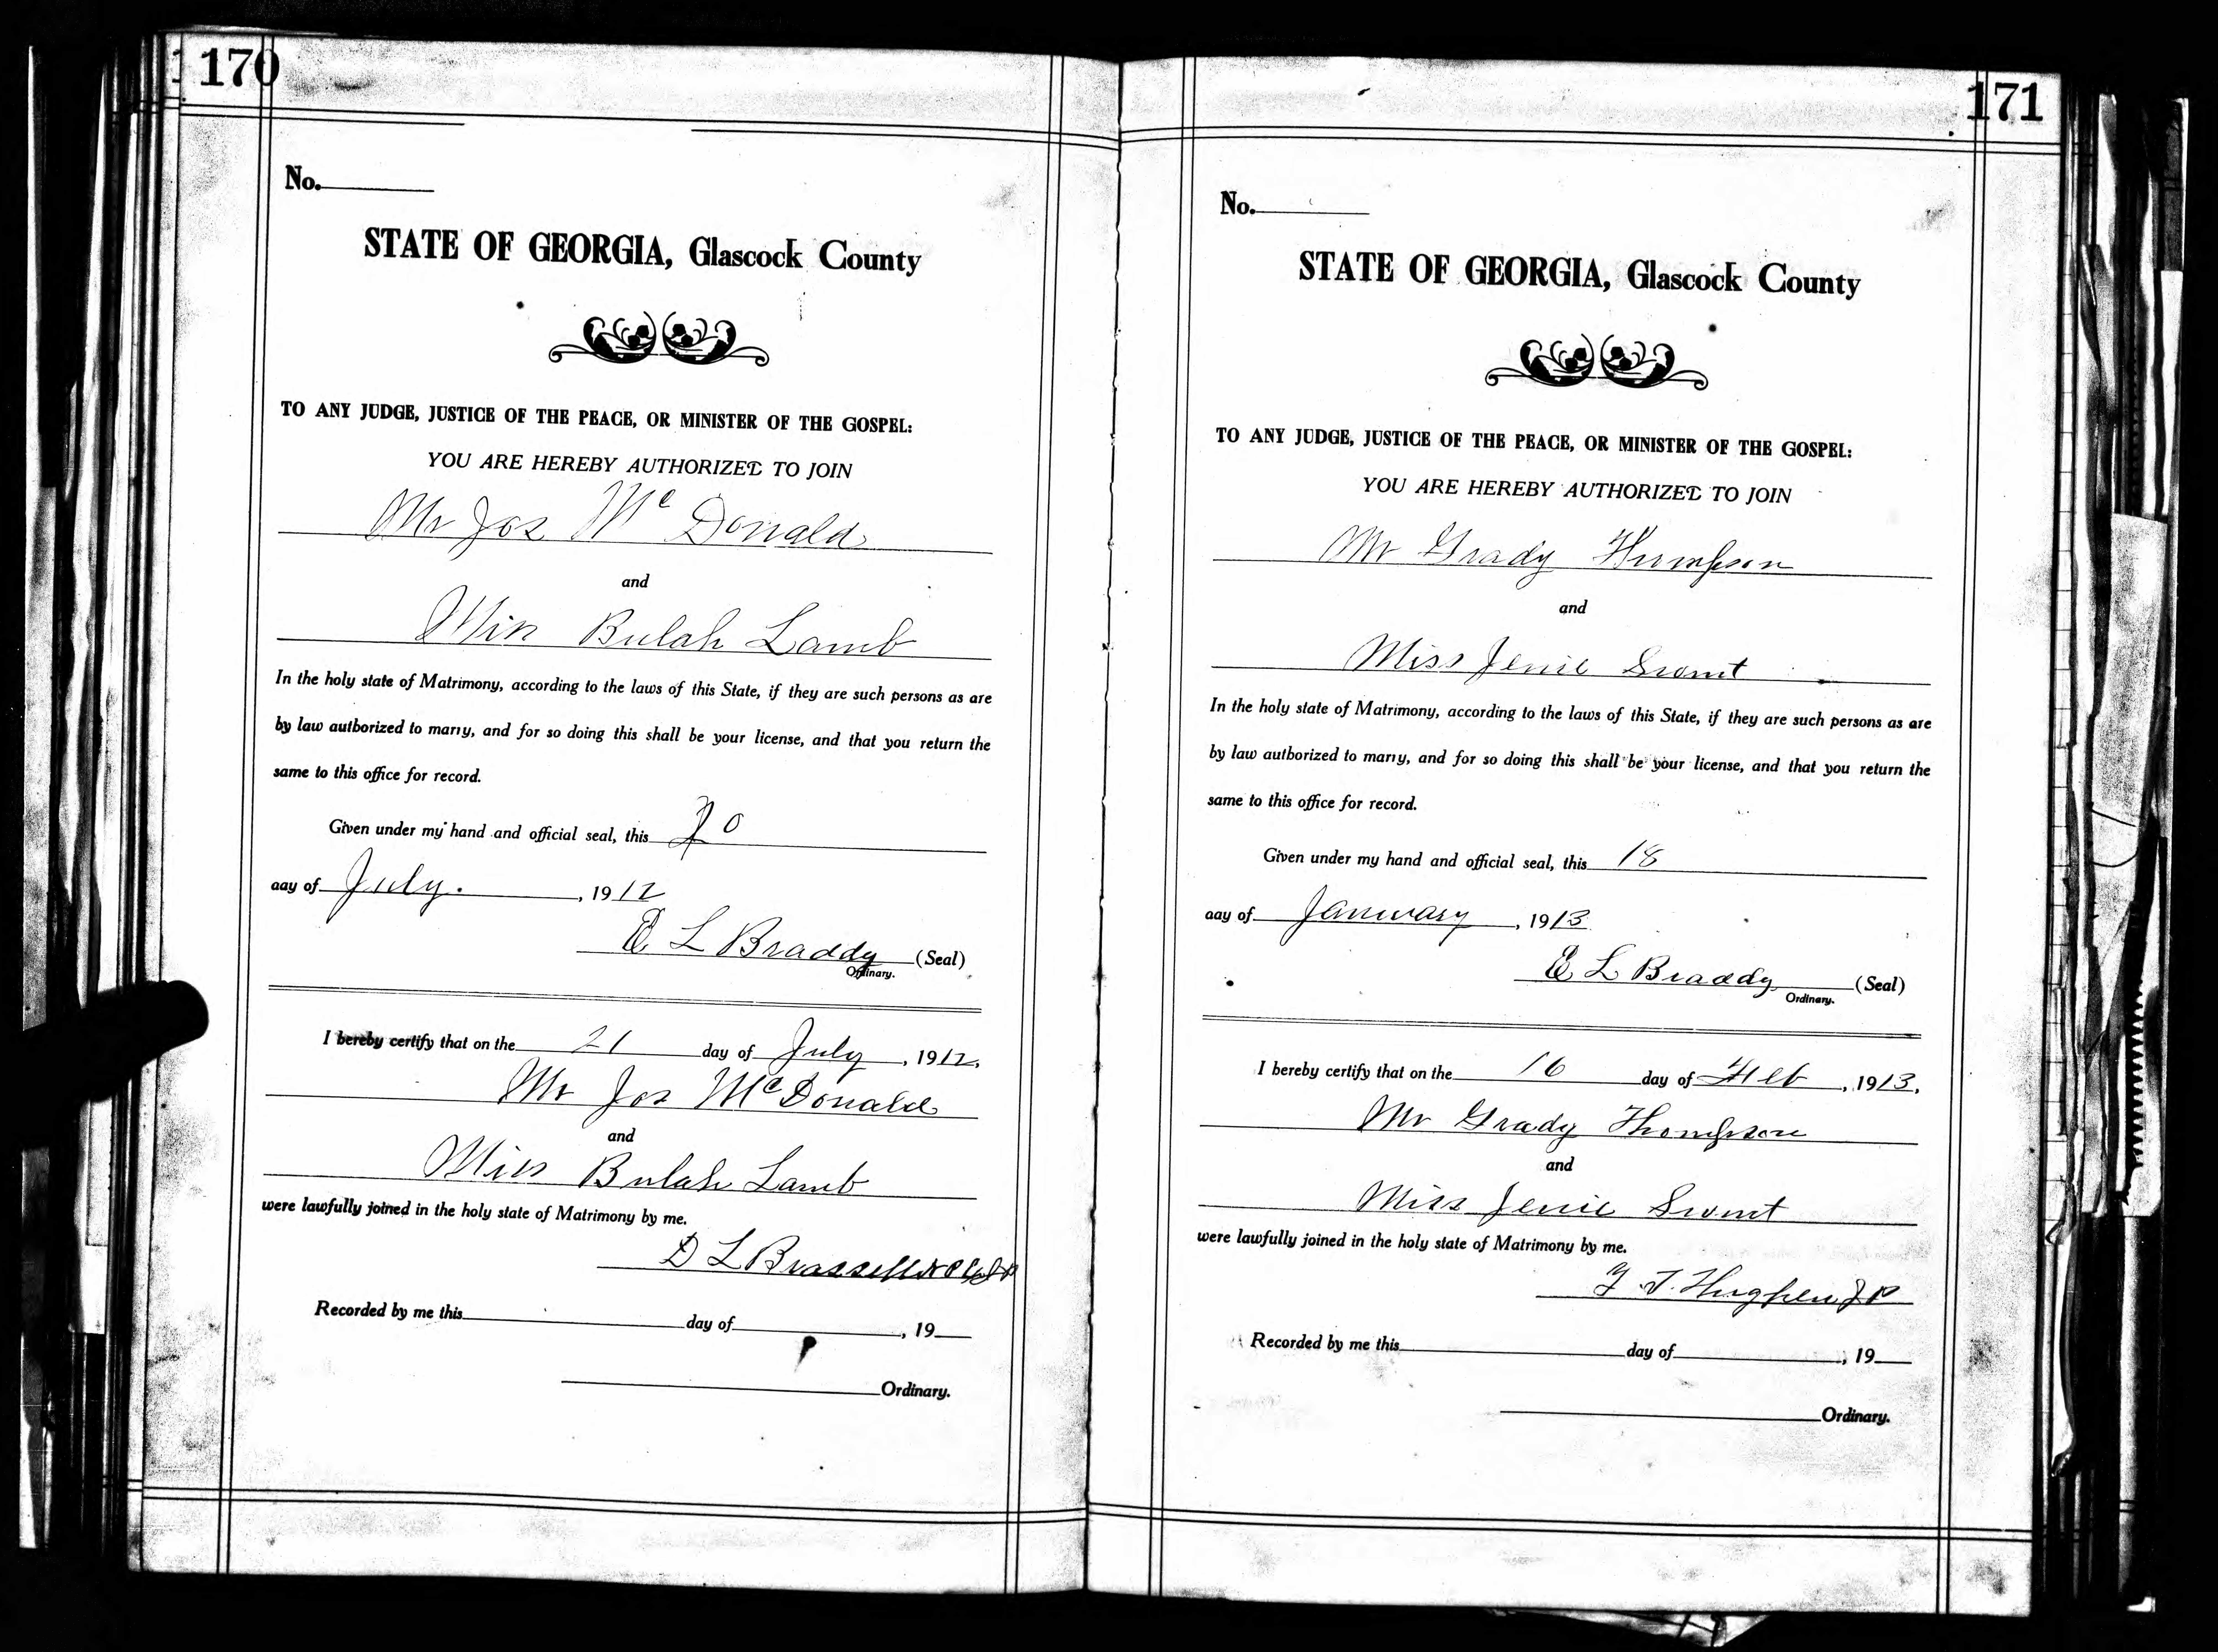 170
No.
STATE OF GEORGIA, Glascock County
TO ANY JUDGE, JUSTICE OF THE PEACE, OR MINISTER OF THE GOSPEL:
YOU ARE HEREBY AUTHORIZED TO JOIN
Mr Jos Mc Donald
and
Miss Bulah Lamb
In the holy state of Matrimony, according to the laws of this State, if they are such persons as are
by law authorized to marry, and for so doing this shall be your license, and that you return the
same to this office for record.
Given under my hand and official seal, this 20
day of July. , 1912
E L Braddy (Seal)
Ordinary.
I hereby certify that on the 21 day of July , 1912.
Mr Jos McDonald
and
Miss Bulah Lamb
were lawfully joined in the holy state of Matrimony by me.
D L Brassell
Recorded by me this day of , 19
Ordinary.
171
No.
STATE OF GEORGIA, Glascock County
TO ANY JUDGE, JUSTICE OF THE PEACE, OR MINISTER OF THE GOSPEL:
YOU ARE HEREBY AUTHORIZED TO JOIN
Mr Grady Thompson
and
Miss Jenie
In the holy state of Matrimony, according to the laws of this State, if they are such persons as are
by law authorized to marry, and for so doing this shall be your license, and that you return the
same to this office for record.
Given under my hand and official seal, this 18
day of January , 1913
E L Braddy (Seal)
Ordinary.
I hereby certify that on the 16 day of Feb , 1913.
Mr Grady Thompson
and
Miss Jenie
were lawfully joined in the holy state of Matrimony by me.
J P
Recorded by me this day of , 19
Ordinary.